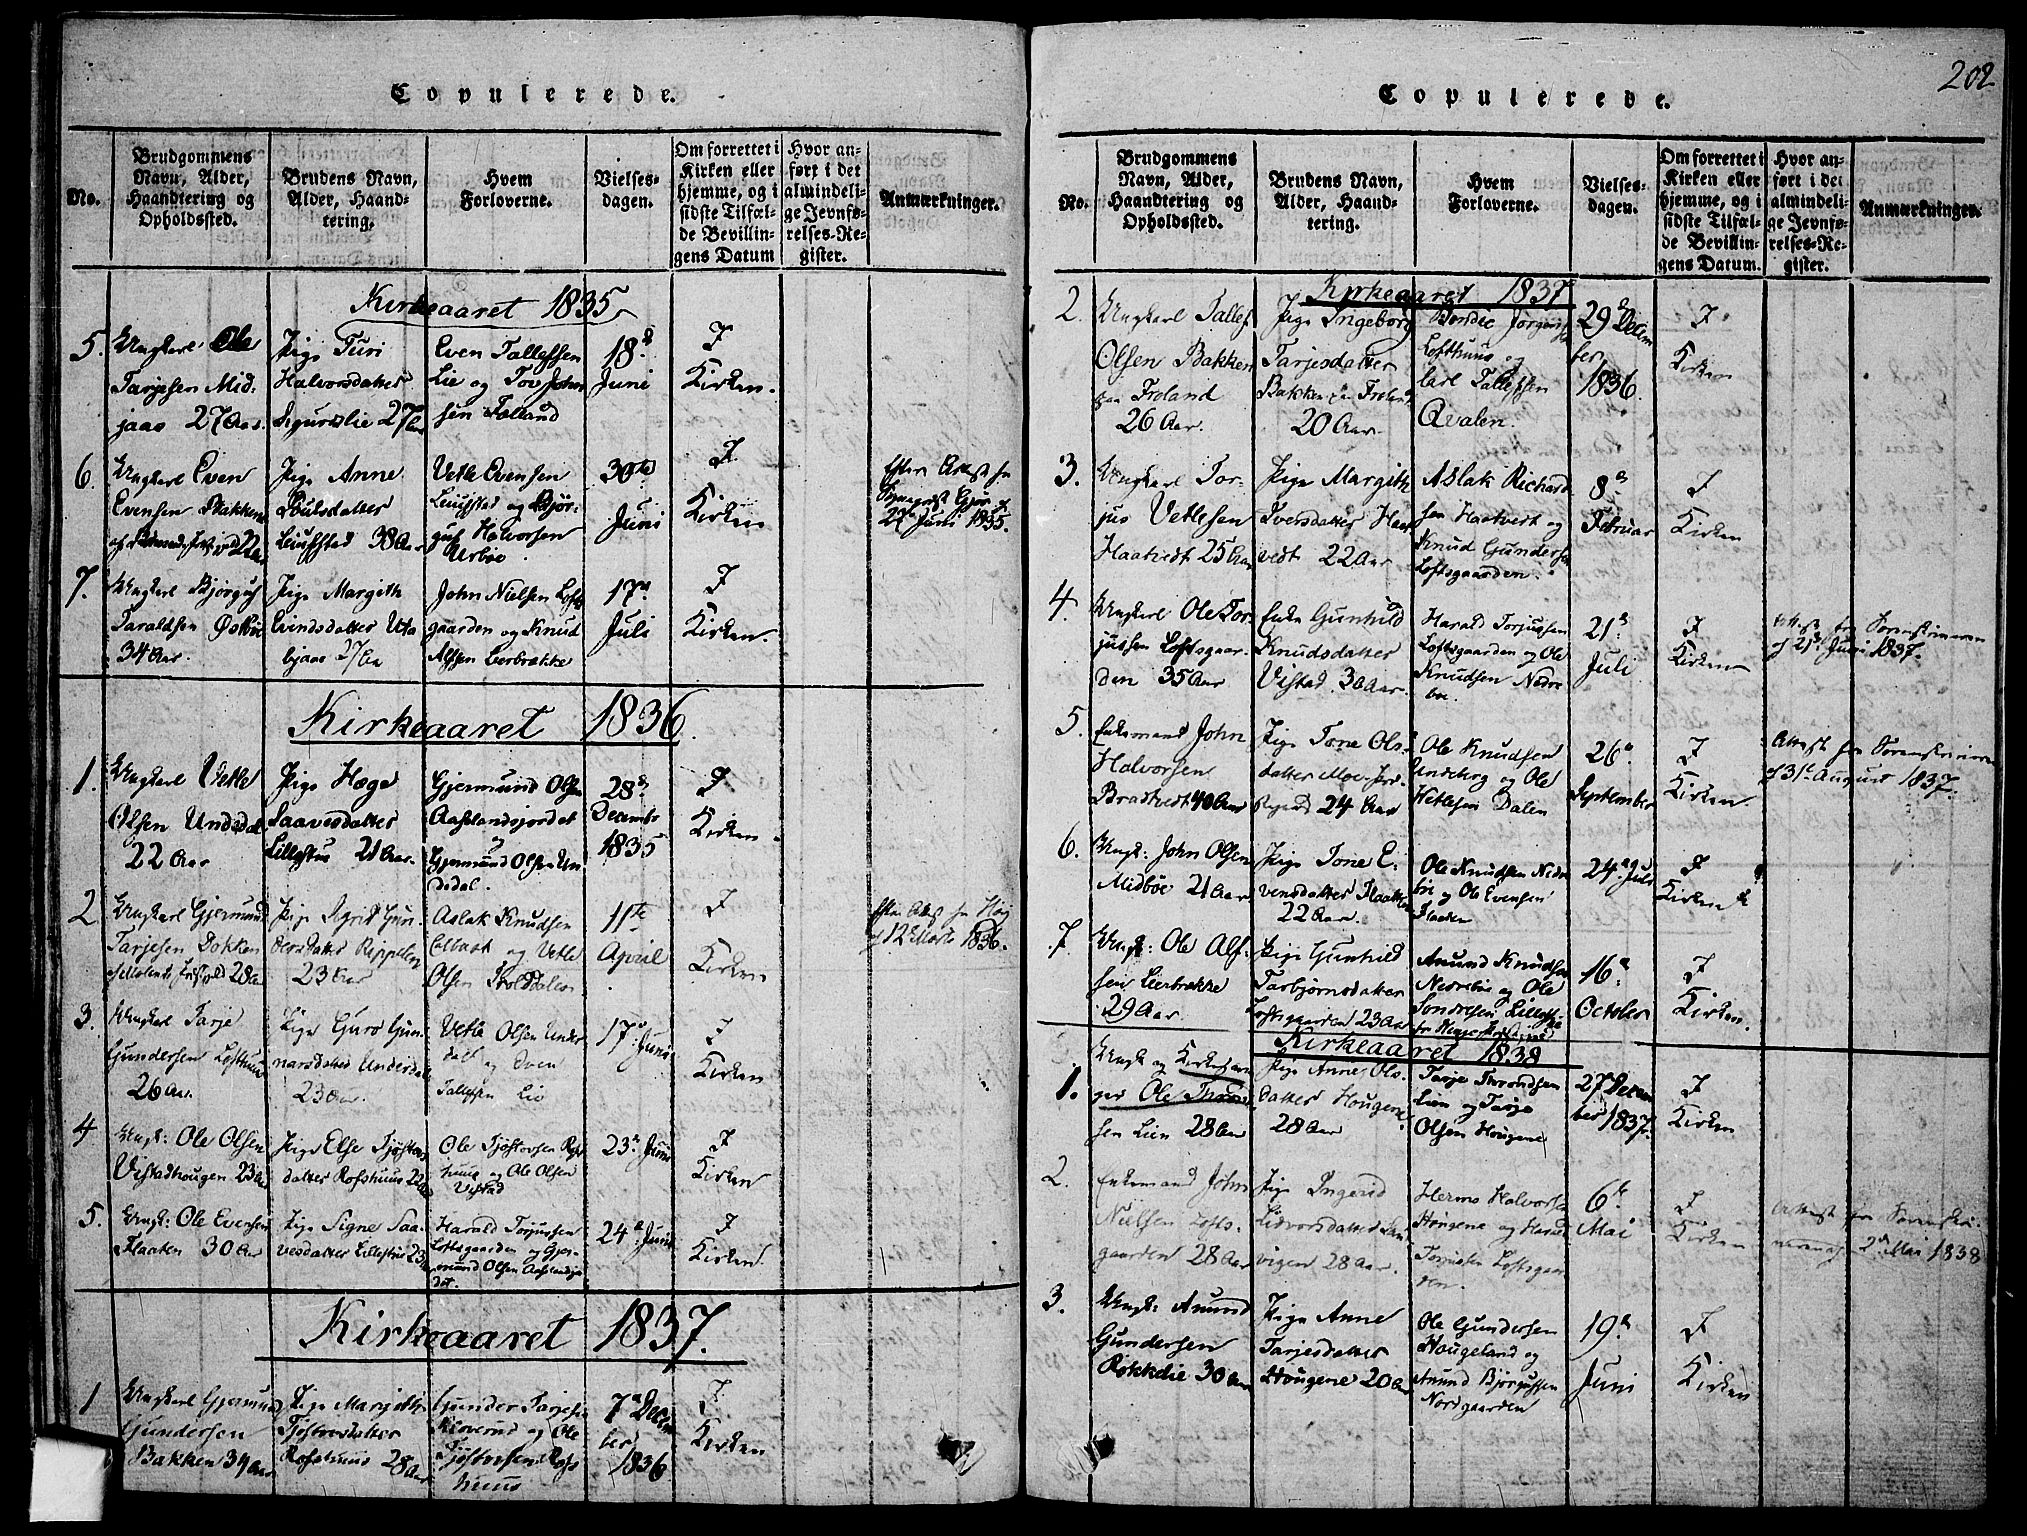 Copulerede.
No.
Brudgommens
Navn, Alder,
Haandtering og
Opholdssted.
Brudens Navn,
Alder, Haand-
tering.
Hvem
Forloverne.
Vielses-
dagen.
Om forrettet i
Kirken eller
hjemme, og i
sidste Tilfæl-
de Bevillin-
gens Datum
Hvor an-
ført i det
almindeli-
ge Jevnfø-
relses-Re-
gister.
Anmærkninger.
Kirkeaaret 1835
5.
Ungkarl Ole
Tarjesen Mid-
jaas 27 Aar.
Pige Turi
Halvorsdatter
Sigurdslie 27 Aar
Even Tallefsen
Lie og Tov John
sen Folland
18de
Juni
I
Kirken.
6.
Ungkarl Even
Evensen Bakken
22 Aar
Pige Anne
Poulsdatter
Leiufstad 38 Aar
Vetle Evensen
Leiufstad og Bjør-
guf Halvorsen
Urboe
30te
Juni
I
Kirken
Efter Attest fra
21 Juni 1835.
7.
Ungkarl Bjørguf
Taraldsen Østbøe
34 Aar.
Pige Margith
Evindsdatter Uta
bjaas 27 Aar
John Nielsen Lofts
gaarden og Knud
Alfsen Leerbrække
17de
Juli
I
Kirken.
Kirkeaaret 1836.
1.
Ungkarl Vetle
Olsen Undedal
22 Aar
Pige Hæge
Saavesdatter
Lillestus 21 Aar.
Gjermund Olsen
Aaslandsjordet
og
Gjermund Olsen Un
dedal.
28de
Decembr
1835
I
Kirken.
2
Ungkarl Gjermund
Tarjesen Dokken
28 Aar
Pige Sigrid Gun-
23 Aar
Aslak Knudsen
og Vetle
Olsen
11te
April
I
Kirken
Efter Attest fra
af 12 Marts 1836.
3.
Ungkarl Tarje
Gundersen Lofthuus
26 Aar.
Pige Guro Gun-
narsdatter Underdal
23 Aar.
Vetle Olsen Under
dal og Even
Tallefsen Lie
17de Juni
I
Kirken
4
Ungk: Ole Olsen
Vistadhougen 23 Aar
Pige Else Tjøstovs
datter Rofshuus 22 Aar
Ole Tjøstovsen Rofs
huus og Ole Olsen
Vistad
23de Juni
I
Kirken
5.
Ungk: Ole Evensen
Flaaten 30 Aar
Pige Signe Saa-
vesdatter Lillestus 23 Aar
Harald Torjussen
Loftsgaarden og Gjer-
mund Olsen Aaslandsjor
det.
24de Juni
I
Kirken.
Kirkeaaret 1837.
1
Ungkarl Gjermund
Gundersen
Bakken 34 Aar
Pige Margith
Tjøstovsdatter
Rofshuus 28 Aar
Gunder Tarjesen
Kleverud og Ole
Tjøstovsen Rofs
huus
7de Decem
ber
1836
I
Kirken
202
Copulerede.
No.
Brudgommens
Navn, Alder,
Haandtering og
Opholdssted.
Brudens Navn,
Alder, Haand-
tering.
Hvem
Forloverne.
Vielses-
dagen.
Om forrettet i
Kirken eller
hjemme, og i
sidste Tilfæl-
de Bevillin-
gens Datum.
Hvor an-
ført i det
almindeli-
ge Jevnfø-
relses-Re-
gister.
Anmærkninger.
Kirkeaaret 1837
2.
Ungkarl Tallef
Olsen Bakken
paa Froland
26 Aar.
Pige Ingeborg
Tarjesdatter
Bakken paa Froland
20 Aar.
Bendic Jørgens
Lofthuus og
Carl Tallefsen
Qvalen.
29de Decem
ber
1836.
I
Kirken
3.
Ungkarl Tor-
jus Vetlesen
Haatvedt 25 Aar
Pige Margith
Iversdatter Haat
vedt 22 Aar
Aslak Richard
sen Haatvedt og
Knud Gunders
Loftsgaarden.
8de
Februar
I
Kirken
4.
Ungkarl Ole Tor-
jussen Loftsgaar-
den 35 Aar
Enke Gunhild
Knudsdatter
Vistad 30 Aar.
Harald Torjussen
Loftsgaarden og Ole
Knudsen Nedre
boe.
21de
Juli
I
Kirken
Attest fra Sorenskriveren
af 21de Juni 1837.
5.
Enkemand John
Halvorsen
Bradtvedt 40 Aar
Pige Tone Ols-
datter Moe
24 Aar
Ole Knudsen
Undeberg og Ole
Vetlesen Dalen
26de
September
I
Kirken
Attest fra Sorenskriveren
af 31te August 1837.
6.
Ungk: John Olsen
Midbøe 21 Aar
Pige Tone E-
vensdatter Flaatten
22 Aar.
Ole Knudsen Nedre
bøe og Ole Evensen
Flaaten
24de Juli
I
Kirken
7
Ungk: Ole Alf-
sen Leerbrække
29 Aar.
Pige Gunhild
Tarbjørnsdatter
Loftsgaarden 23 Aar
Anund Knudsen
Nedrebøe og Ole
Sondresen
16de
October
I
Kirken.
Kirkeaaret 1838
1.
Ungk og Kirkesan
ger Ole Thrond
sen Lien 28 Aar
Pige Anne Ols-
datter Hougene
28 Aar
Tarje Throndsen
Lien og Tarje
Olsen Hougene
27de Decem
ber 1837.
I
Kirken
2.
Enkemand John
Nielsen Lofts-
gaarden 28 Aar
Pige Ingerid
Lidvorsdatter
vigen 28 Aar.
Hermo Halvorsen
Hougene og Harald
Torjussen Loftsgaar
den.
6te
Mai
I
Kirken
Attest fra Sorenskri-
veren af 2den Mai 1838
3.
Ungk: Anund
Gundersen
Rokkelie 30 Aar
Pige Anne
Tarjesdatter
Hougene 20 Aar
Ole Gundersen
Hougeland og
Anund Bjørgufsen
Nordgaarden
19de
Juni
I
Kirken